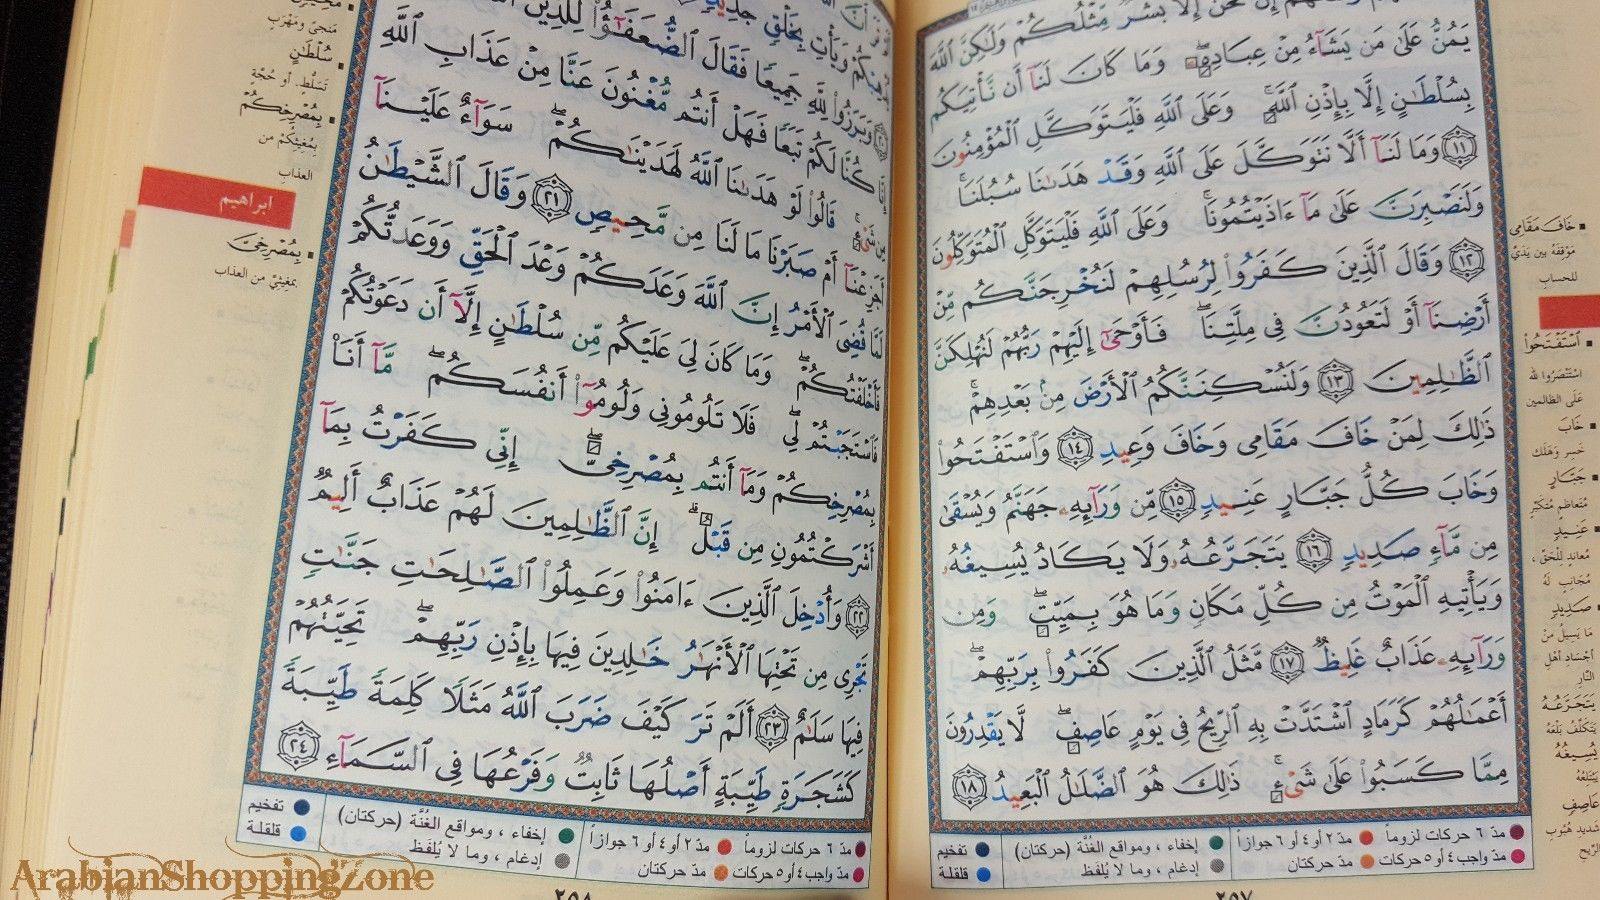 يَمُنُّ عَلَىٰ مَن يَشَآءُ مِنْ عِبَادِهِۦۖ وَمَا كَانَ لَنَآ أَن نَّأْتِيَكُم
بِسُلْطَٰنٍ إِلَّا بِإِذْنِ ٱللَّهِۚ وَعَلَى ٱللَّهِ فَلْيَتَوَكَّلِ ٱلْمُؤْمِنُونَ
١١ وَمَا لَنَآ أَلَّا نَتَوَكَّلَ عَلَى ٱللَّهِ وَقَدْ هَدَىٰنَا سُبُلَنَاۚ
وَلَنَصْبِرَنَّ عَلَىٰ مَآ ءَاذَيْتُمُونَاۚ وَعَلَى ٱللَّهِ فَلْيَتَوَكَّلِ ٱلْمُتَوَكِّلُونَ
١٢ وَقَالَ ٱلَّذِينَ كَفَرُوا۟ لِرُسُلِهِمْ لَنُخْرِجَنَّكُم مِّنْ
أَرْضِنَآ أَوْ لَتَعُودُنَّ فِى مِلَّتِنَاۖ فَأَوْحَىٰٓ إِلَيْهِمْ رَبُّهُمْ لَنُهْلِكَنَّ
ٱلظَّٰلِمِينَ ١٣ وَلَنُسْكِنَنَّكُمُ ٱلْأَرْضَ مِنۢ بَعْدِهِمْۚ
ذَٰلِكَ لِمَنْ خَافَ مَقَامِى وَخَافَ وَعِيدِ ١٤ وَٱسْتَفْتَحُوا۟
وَخَابَ كُلُّ جَبَّارٍ عَنِيدٍ ١٥ مِّن وَرَآئِهِۦ جَهَنَّمُ وَيُسْقَىٰ
مِن مَّآءٍ صَدِيدٍ ١٦ يَتَجَرَّعُهُۥ وَلَا يَكَادُ يُسِيغُهُۥ
وَيَأْتِيهِ ٱلْمَوْتُ مِن كُلِّ مَكَانٍ وَمَا هُوَ بِمَيِّتٍۖ وَمِن
وَرَآئِهِۦ عَذَابٌ غَلِيظٌ ١٧ مَّثَلُ ٱلَّذِينَ كَفَرُوا۟ بِرَبِّهِمْۖ
أَعْمَٰلُهُمْ كَرَمَادٍ ٱشْتَدَّتْ بِهِ ٱلرِّيحُ فِى يَوْمٍ عَاصِفٍۖ لَّا يَقْدِرُونَ
مِمَّا كَسَبُوا۟ عَلَىٰ شَىْءٍۚ ذَٰلِكَ هُوَ ٱلضَّلَٰلُ ٱلْبَعِيدُ ١٨
مدّ ٦ حركات لزوماً مدّ ٢ أو ٤ أو ٦ جوازاً إخفاء، ومواقع الغُنَّة (حركتان) تفخيم
مدّ واجب ٤ أو ٥ حركات مدّ حركتان إدغام، وما لا يُلفَظ قلقلة
٢٥٧
خَافَ مَقَامِى
مَوْقِفَهُ بين يَدَيَّ
للحساب
ٱسْتَفْتَحُوا۟
اسْتَنْصَرُوا لله
عَلَى الظالمين
خَابَ
خَسِر وَهَلَك
جَبَّارٍ
مُتَعَاظِمٍ مُتَكَبِّرٍ
عَنِيدٍ
مُعانِدٍ لِلْحَقّ،
مُجَانِبٍ لَهُ
صَدِيدٍ
مَا يَسِيلُ مِنْ
أجْسَادِ أهْلِ
النَّارِ
يَتَجَرَّعُهُ
يَتَكَلَّفُ بَلْعَهُ
يُسِيغُهُ
يَبْتَلِعُهُ
عَاصِفٍ
شديدِ هُبُوبِ
الرِّيحِ
وَبَرَزُوا۟ لِلَّهِ جَمِيعًا فَقَالَ ٱلضُّعَفَٰٓؤُا۟ لِلَّذِينَ
كُنَّا لَكُمْ تَبَعًا فَهَلْ أَنتُم مُّغْنُونَ عَنَّا مِنْ عَذَابِ ٱللَّهِ
مِن شَىْءٍۚ قَالُوا۟ لَوْ هَدَىٰنَا ٱللَّهُ لَهَدَيْنَٰكُمْۖ سَوَآءٌ عَلَيْنَآ
أَجَزِعْنَآ أَمْ صَبَرْنَا مَا لَنَا مِن مَّحِيصٍ ٢١ وَقَالَ ٱلشَّيْطَٰنُ
لَمَّا قُضِىَ ٱلْأَمْرُ إِنَّ ٱللَّهَ وَعَدَكُمْ وَعْدَ ٱلْحَقِّ وَوَعَدتُّكُمْ
فَأَخْلَفْتُكُمْۖ وَمَا كَانَ لِىَ عَلَيْكُم مِّن سُلْطَٰنٍ إِلَّآ أَن دَعَوْتُكُمْ
فَٱسْتَجَبْتُمْ لِىۖ فَلَا تَلُومُونِى وَلُومُوٓا۟ أَنفُسَكُمۖ مَّآ أَنَا۠
بِمُصْرِخِكُمْ وَمَآ أَنتُم بِمُصْرِخِىَّۖ إِنِّى كَفَرْتُ بِمَآ
أَشْرَكْتُمُونِ مِن قَبْلُۗ إِنَّ ٱلظَّٰلِمِينَ لَهُمْ عَذَابٌ أَلِيمٌ
٢٢ وَأُدْخِلَ ٱلَّذِينَ ءَامَنُوا۟ وَعَمِلُوا۟ ٱلصَّٰلِحَٰتِ جَنَّٰتٍ
تَجْرِى مِن تَحْتِهَا ٱلْأَنْهَٰرُ خَٰلِدِينَ فِيهَا بِإِذْنِ رَبِّهِمْۖ تَحِيَّتُهُمْ
فِيهَا سَلَٰمٌ ٢٣ أَلَمْ تَرَ كَيْفَ ضَرَبَ ٱللَّهُ مَثَلًا كَلِمَةً طَيِّبَةً
كَشَجَرَةٍ طَيِّبَةٍ أَصْلُهَا ثَابِتٌ وَفَرْعُهَا فِى ٱلسَّمَآءِ ٢٤
مدّ ٦ حركات لزوماً مدّ ٢ أو ٤ أو ٦ جوازاً إخفاء، ومواقع الغُنَّة (حركتان) تفخيم
مدّ واجب ٤ أو ٥ حركات مدّ حركتان إدغام، وما لا يُلفَظ قلقلة
٢٥٨
مَنجىً ومَهْرَبٍ
سُلْطَانٍ
تَسَلُّطٍ. أو حُجَّةٍ
بِمُصْرِخِكُمْ
بِمُغِيثِكُمْ من
العذاب
ابراهيم
بِمُصْرِخِىَّ
بمغيثيَّ من العذاب
ArabianShoppingZone